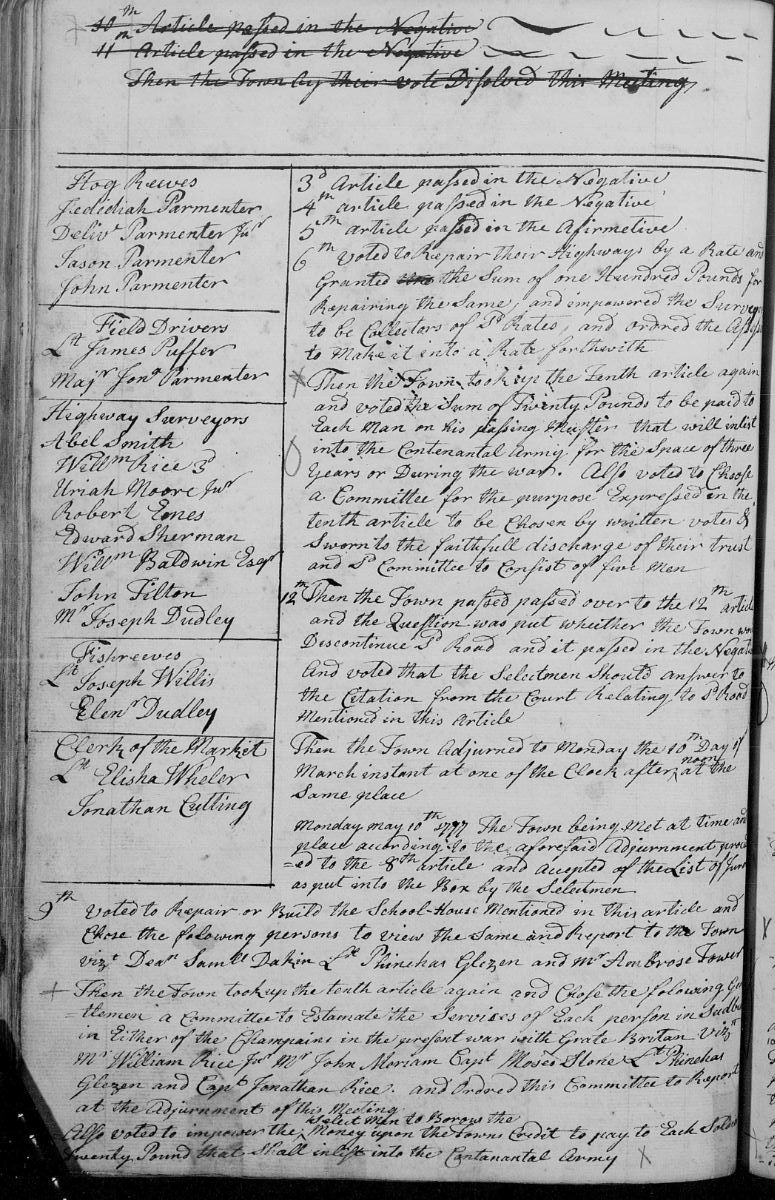 10th Article passed in the Negative
11th Article passed in the Negative
Then the Town by their vote Disolved this Meeting
Hog Reeves
Jedidiah Parmenter
Delivr Parmenter Junr
Jason Parmenter
John Parmenter
Field Drivers
Lt James Puffer
Majr Jona Parmenter
Highway Surveyors
Abel Smith
Willm Rice 3d
Uriah Moore Junr
Robert Emes
Edward Sherman
Willm Baldwin Esqr
John Tilton
Mr Joseph Dudley
Fishreeves
Lt Joseph Willis
Elenr Dudley
Clerk of the Market
Lt Elisha Wheler
Jonathan Cutting
3d Article passed in the Negative
4th article passed in the Negative
5th article passed in the Afirmetive
6th Voted to Repair their Highways by a Rate and
Granted the Sum of one Hundred Pounds for
Repairing the Same, and empowered the Survey
to be Collectors of Sd Rates, and ordred the Assess
to Make it into a Rate forthwith
Then the Town took up the Tenth article again
and voted the Sum of Twenty Pounds to be paid to
Each Man on his passing Muster that will inlist
into the Contenantal Army for the Space of three
Years or During the war. Also voted to Choose
a Committee for the purpose Expressed in the
tenth article to be Chosen by written votes &
Sworn to the faithfull discharge of their trust
and Sd Committee to Consist of five Men
12th Then the Town passed passed over to the 12th articl
and the Question was put whether the Town wou
Discontinue Sd Road and it passed in the Negati
And voted that the Selectmen Should answer to
the Citation from the Court Relating to Sd Road
Mentioned in this Article
Then the Town Adjurned to Monday the 10th Day of
March instant at one of the Clock after noon at the
Same place
Monday may 10th 1777 The Town being Met at time and
place acording to the aforesaid Adjurnment proced
=ed to the 8th article and accepted of the List of Juro
as put into the Box by the Selectmen
9th Voted to Repair or Build the School-House Mentioned in this article and
Chose the folowing persons to view the Same and Report to the Town
vizt Dean Samll Dakin Lt Phinehas Glezen and Mr Ambrose Tower
Then the Town took up the tenth article again and Chose the folowing Gen
=tlemen a Committee to Estemate the Services of Each person in Sudbu
in Either of the Champains in the present war with Grate Britan vizt
Mr William Rice Junr Mr John Meriam Capt Moses Stone Lt Phinehas
Glezen and Capt Jonathan Rice. and Ordred this Committee to Report
at the Adjurnment of this Meeting
Also voted to impower the Select Men to Borow the Money upon the Towns Credit to pay to Each Soldier
Twenty Pound that Shall inlist into the Contanantal Army